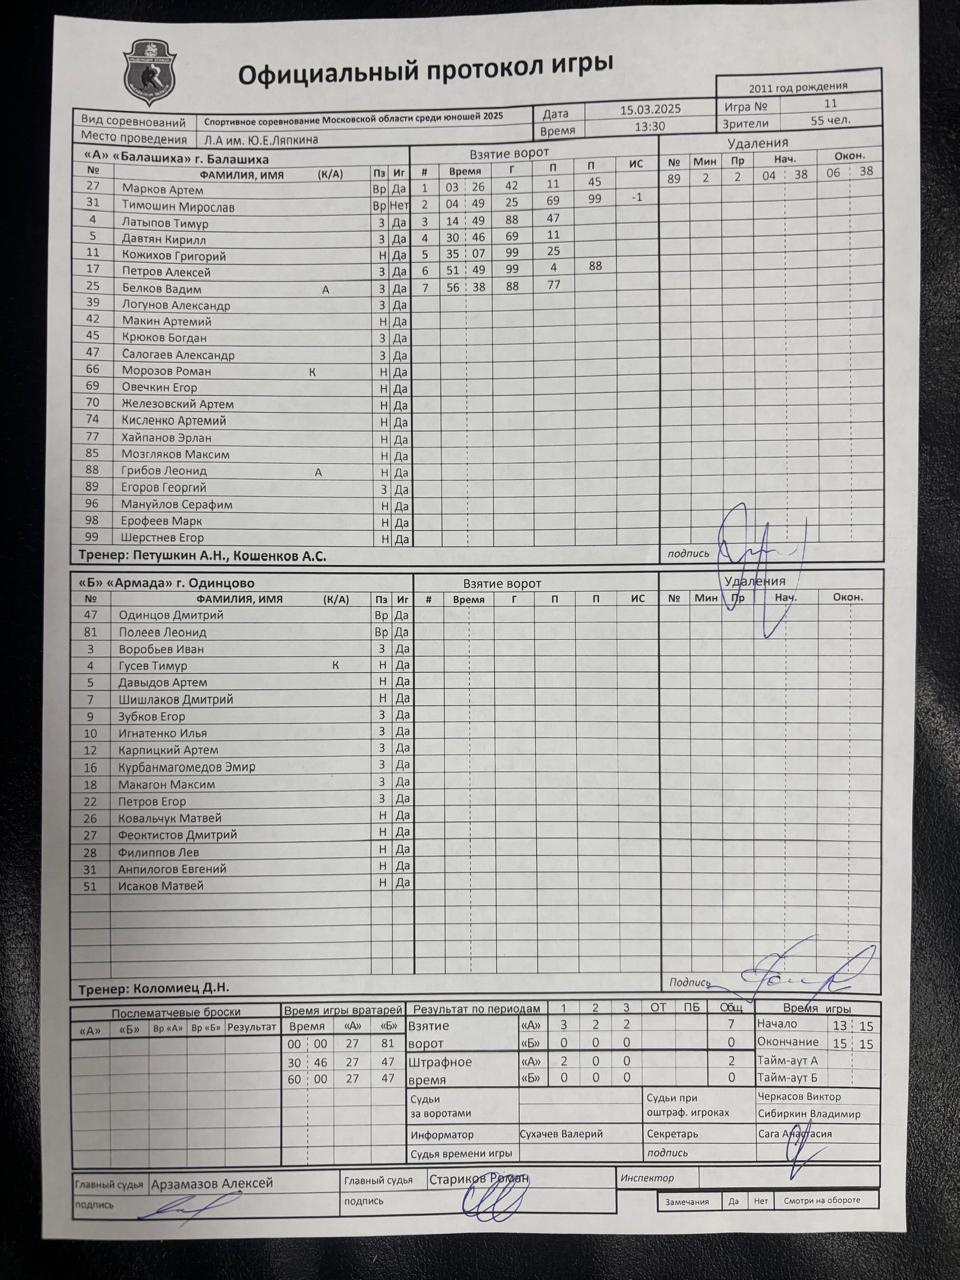 Официальный протокол игры
2011 год рождения
Вид соревнований Спортивное соревнование Московской области среди юношей 2025 Дата 15.03.2025 Игра № 11
Место проведения Л.А им. Ю.Е.Ляпкина Время 13:30 Зрители 55 чел.
«А» «Балашиха» г. Балашиха Взятие ворот Удаления
№ ФАМИЛИЯ, ИМЯ (К/А) Пз Иг # Время Г П П ИС № Мин Пр Нач. Окон.
27 Марков Артем Вр Да 1 03 26 42 11 45 89 2 2 04 38 06 38
31 Тимошин Мирослав Вр Нет 2 04 49 25 69 99 -1
4 Латыпов Тимур З Да 3 14 49 88 47
5 Давтян Кирилл З Да 4 30 46 69 11
11 Кожихов Григорий Н Да 5 35 07 99 25
17 Петров Алексей З Да 6 51 49 99 4 88
25 Белков Вадим А З Да 7 56 38 88 77
39 Логунов Александр З Да
42 Макин Артемий Н Да
45 Крюков Богдан З Да
47 Салогаев Александр З Да
66 Морозов Роман К Н Да
69 Овечкин Егор Н Да
70 Железовский Артем Н Да
74 Кисленко Артемий Н Да
77 Хайпанов Эрлан Н Да
85 Мозгляков Максим Н Да
88 Грибов Леонид А Н Да
89 Егоров Георгий З Да
96 Мануйлов Серафим Н Да
98 Ерофеев Марк Н Да
99 Шерстнев Егор Н Да
Тренер: Петушкин А.Н., Кошенков А.С. подпись
«Б» «Армада» г. Одинцово Взятие ворот Удаления
№ ФАМИЛИЯ, ИМЯ (К/А) Пз Иг # Время Г П П ИС № Мин Пр Нач. Окон.
47 Одинцов Дмитрий Вр Да
81 Полеев Леонид Вр Да
3 Воробьев Иван З Да
4 Гусев Тимур К Н Да
5 Давыдов Артем Н Да
7 Шишлаков Дмитрий Н Да
9 Зубков Егор З Да
10 Игнатенко Илья З Да
12 Карпицкий Артем З Да
16 Курбанмагомедов Эмир З Да
18 Макагон Максим З Да
22 Петров Егор З Да
26 Ковальчук Матвей Н Да
27 Феоктистов Дмитрий Н Да
28 Филиппов Лев Н Да
31 Анпилогов Евгений Н Да
51 Исаков Матвей Н Да
Тренер: Коломиец Д.Н. Подпись
Послематчевые броски Время игры вратарей Результат по периодам 1 2 3 ОТ ПБ Общ Время игры
«А» «Б» Вр «А» Вр «Б» Результат Время «А» «Б» Взятие «А» 3 2 2 7 Начало 13 15
00 00 27 81 ворот «Б» 0 0 0 0 Окончание 15 15
30 46 27 47 Штрафное «А» 2 0 0 2 Тайм-аут А
60 00 27 47 время «Б» 0 0 0 0 Тайм-аут Б
Судьи за воротами Судьи при оштраф. игроках Черкасов Виктор
Сибиркин Владимир
Информатор Сухачев Валерий Секретарь Сага Анастасия
Судья времени игры подпись
Главный судья Арзамазов Алексей Главный судья Стариков Роман Инспектор
подпись подпись Замечания Да Нет Смотри на обороте